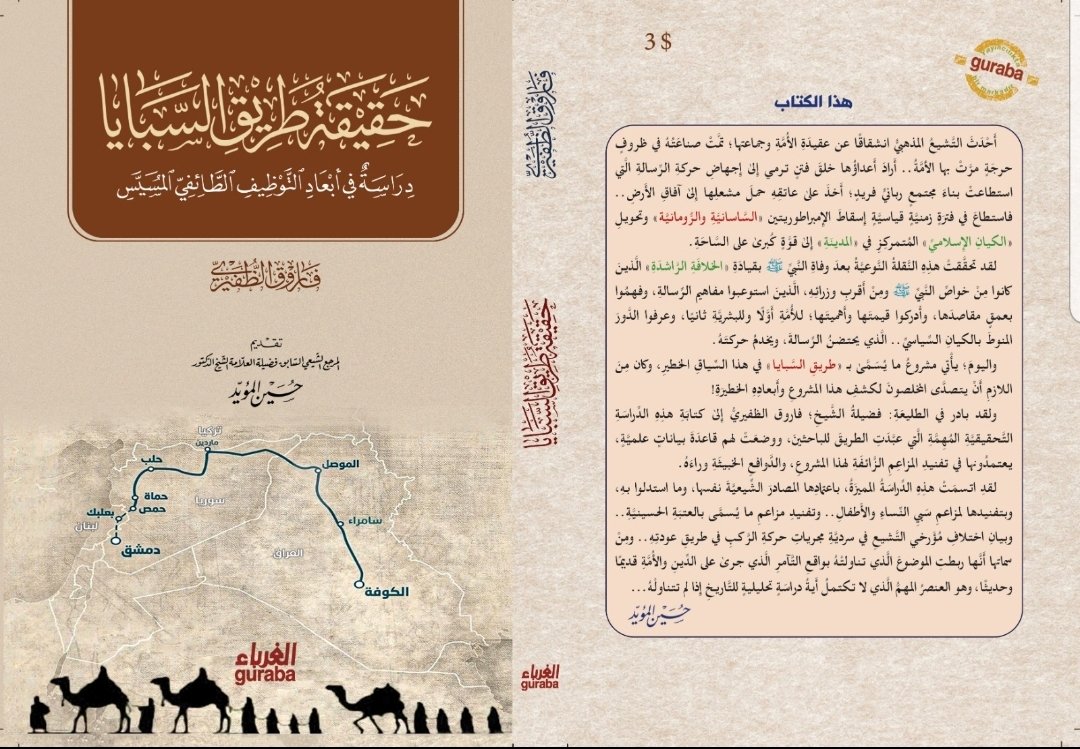 حَقِيقَةُ طَرِيْقِ السَّبَايَا
دِرَاسَةٌ فِي أَبْعَادِ التَّوْظِيفِ الطَّائِفِيِّ المُسَيَّسِ
فَارُوق الظَّفِيْرِيّ
تقديم
المرجع الشيعي السابق، فضيلة العلامة الشيخ الدكتور
حُسَيْن المُؤَيّد
تركيا
ماردين
حلب
الموصل
سوريا
حماة
حمص
سامراء
بعلبك
لبنان
دمشق
العراق
الكوفة
الغرباء
guraba
فَارُوق الظَّفِيْرِيّ
حَقِيقَةُ طَرِيْقِ السَّبَايَا
الغرباء
guraba
3 $
guraba
هذا الكتاب
أَحْدَثَ التَّشيعُ المذهبيُّ انشقاقًا عن عقيدَةِ الأُمَّةِ وجماعتِها؛ تمَّتْ صناعَتُهُ في ظروفٍ
حرجَةٍ مرَّتْ بها الأمّةُ.. أرادَ أعداؤُها خلقَ فتنٍ ترمي إلى إجهاضِ حركةِ الرِّسالةِ الَّتي
استطاعتْ بناءَ مجتمعٍ ربانيٍّ فريدٍ؛ أخذَ على عاتقِهِ حملَ مشعلِها إلى آفاقِ الأرضِ..
فاستطاعَ في فترةٍ زمنيَّةٍ قياسيَّةٍ إسقاطَ الإمبراطوريتين «السَّاسانيَّةِ والرُّومانيَّةِ» وتحويلِ
«الكيانِ الإسلاميِّ» المُتمركِزِ في «المدينَةِ» إلى قوَّةٍ كُبرى على السَّاحَةِ.
لقد تحقَّقتْ هذِهِ النَّقلةُ النَّوعيَّةُ بعدَ وفاةِ النَّبيِّ ﷺ بقيادَةِ «الخلافَةِ الرَّاشدَةِ» الَّذينَ
كانوا مِنْ خواصِّ النَّبيِّ ﷺ ومِنْ أقربِ وزرائِهِ، الَّذينَ استوعبوا مفاهيم الرِّسالةِ، وفهمُوا
بعمقٍ مقاصدَها، وأدركوا قيمتَها وأهميتَها؛ للأُمَّةِ أوَّلًا وللبشريَّةِ ثانيًا، وعرفوا الدَّورَ
المنوطَ بالكيانِ السِّياسيِّ.. الَّذي يحتضنُ الرِّسالةَ، ويخدمُ حركتَهُ.
واليومَ؛ يأتِي مشروعُ ما يُسَمَّى بـ «طريقِ السَّبايا» في هذا السِّياقِ الخطيرِ، وكان مِنَ
اللازمِ أنْ يتصدَّى المخلصونَ لكشفِ هذا المشروعِ وأبعادِهِ الخطيرةِ!
ولقد بادر في الطليعَةِ: فضيلةُ الشَّيخِ؛ فاروق الظفيريُّ إلى كتابَةِ هذِهِ الدِّراسَةِ
التَّحقيقيَّةِ المُهِمَّةِ الَّتي عبَّدَتِ الطريقَ للباحثينَ، ووضعَتْ لهم قاعدَةَ بياناتٍ علميَّةٍ،
يعتمدُونها في تفنيدِ المزاعمِ الزَّائفَةِ لهذا المشروعِ، والدَّوافعِ الخبيثَةِ وراءَهُ.
لقدِ اتسمَتْ هذِهِ الدِّراسَةُ المميَّزَةُ، باعتمادِها المصادرَ الشِّيعيَّةَ نفسَها، وما استدلوا بهِ،
وبتفنيدِها لمزاعمِ سَبي النِّساءِ والأطفالِ.. وتفنيدِ مزاعمِ ما يُسمَّى بالعتبَةِ الحسينيَّةِ..
وبيانِ اختلافِ مُؤرِّخي التَّشيعِ في سرديَّةِ مجرياتِ حركةِ الرَّكبِ في طريقِ عودتِهِ.. ومِنْ
سماتِها أنَّها ربطتِ الموضوعَ الَّذي تناولتْهُ بواقعِ التَّآمرِ الَّذي جرىٰ على الدِّينِ والأُمَّةِ قديمًا
وحديثًا، وهو العنصرُ المهمُّ الَّذي لا تكتملُ أيةُ دراسَةٍ تحليليَّةٍ للتَّاريخِ إذا لم تتناولْهُ...
حُسَيْن المُؤَيّد